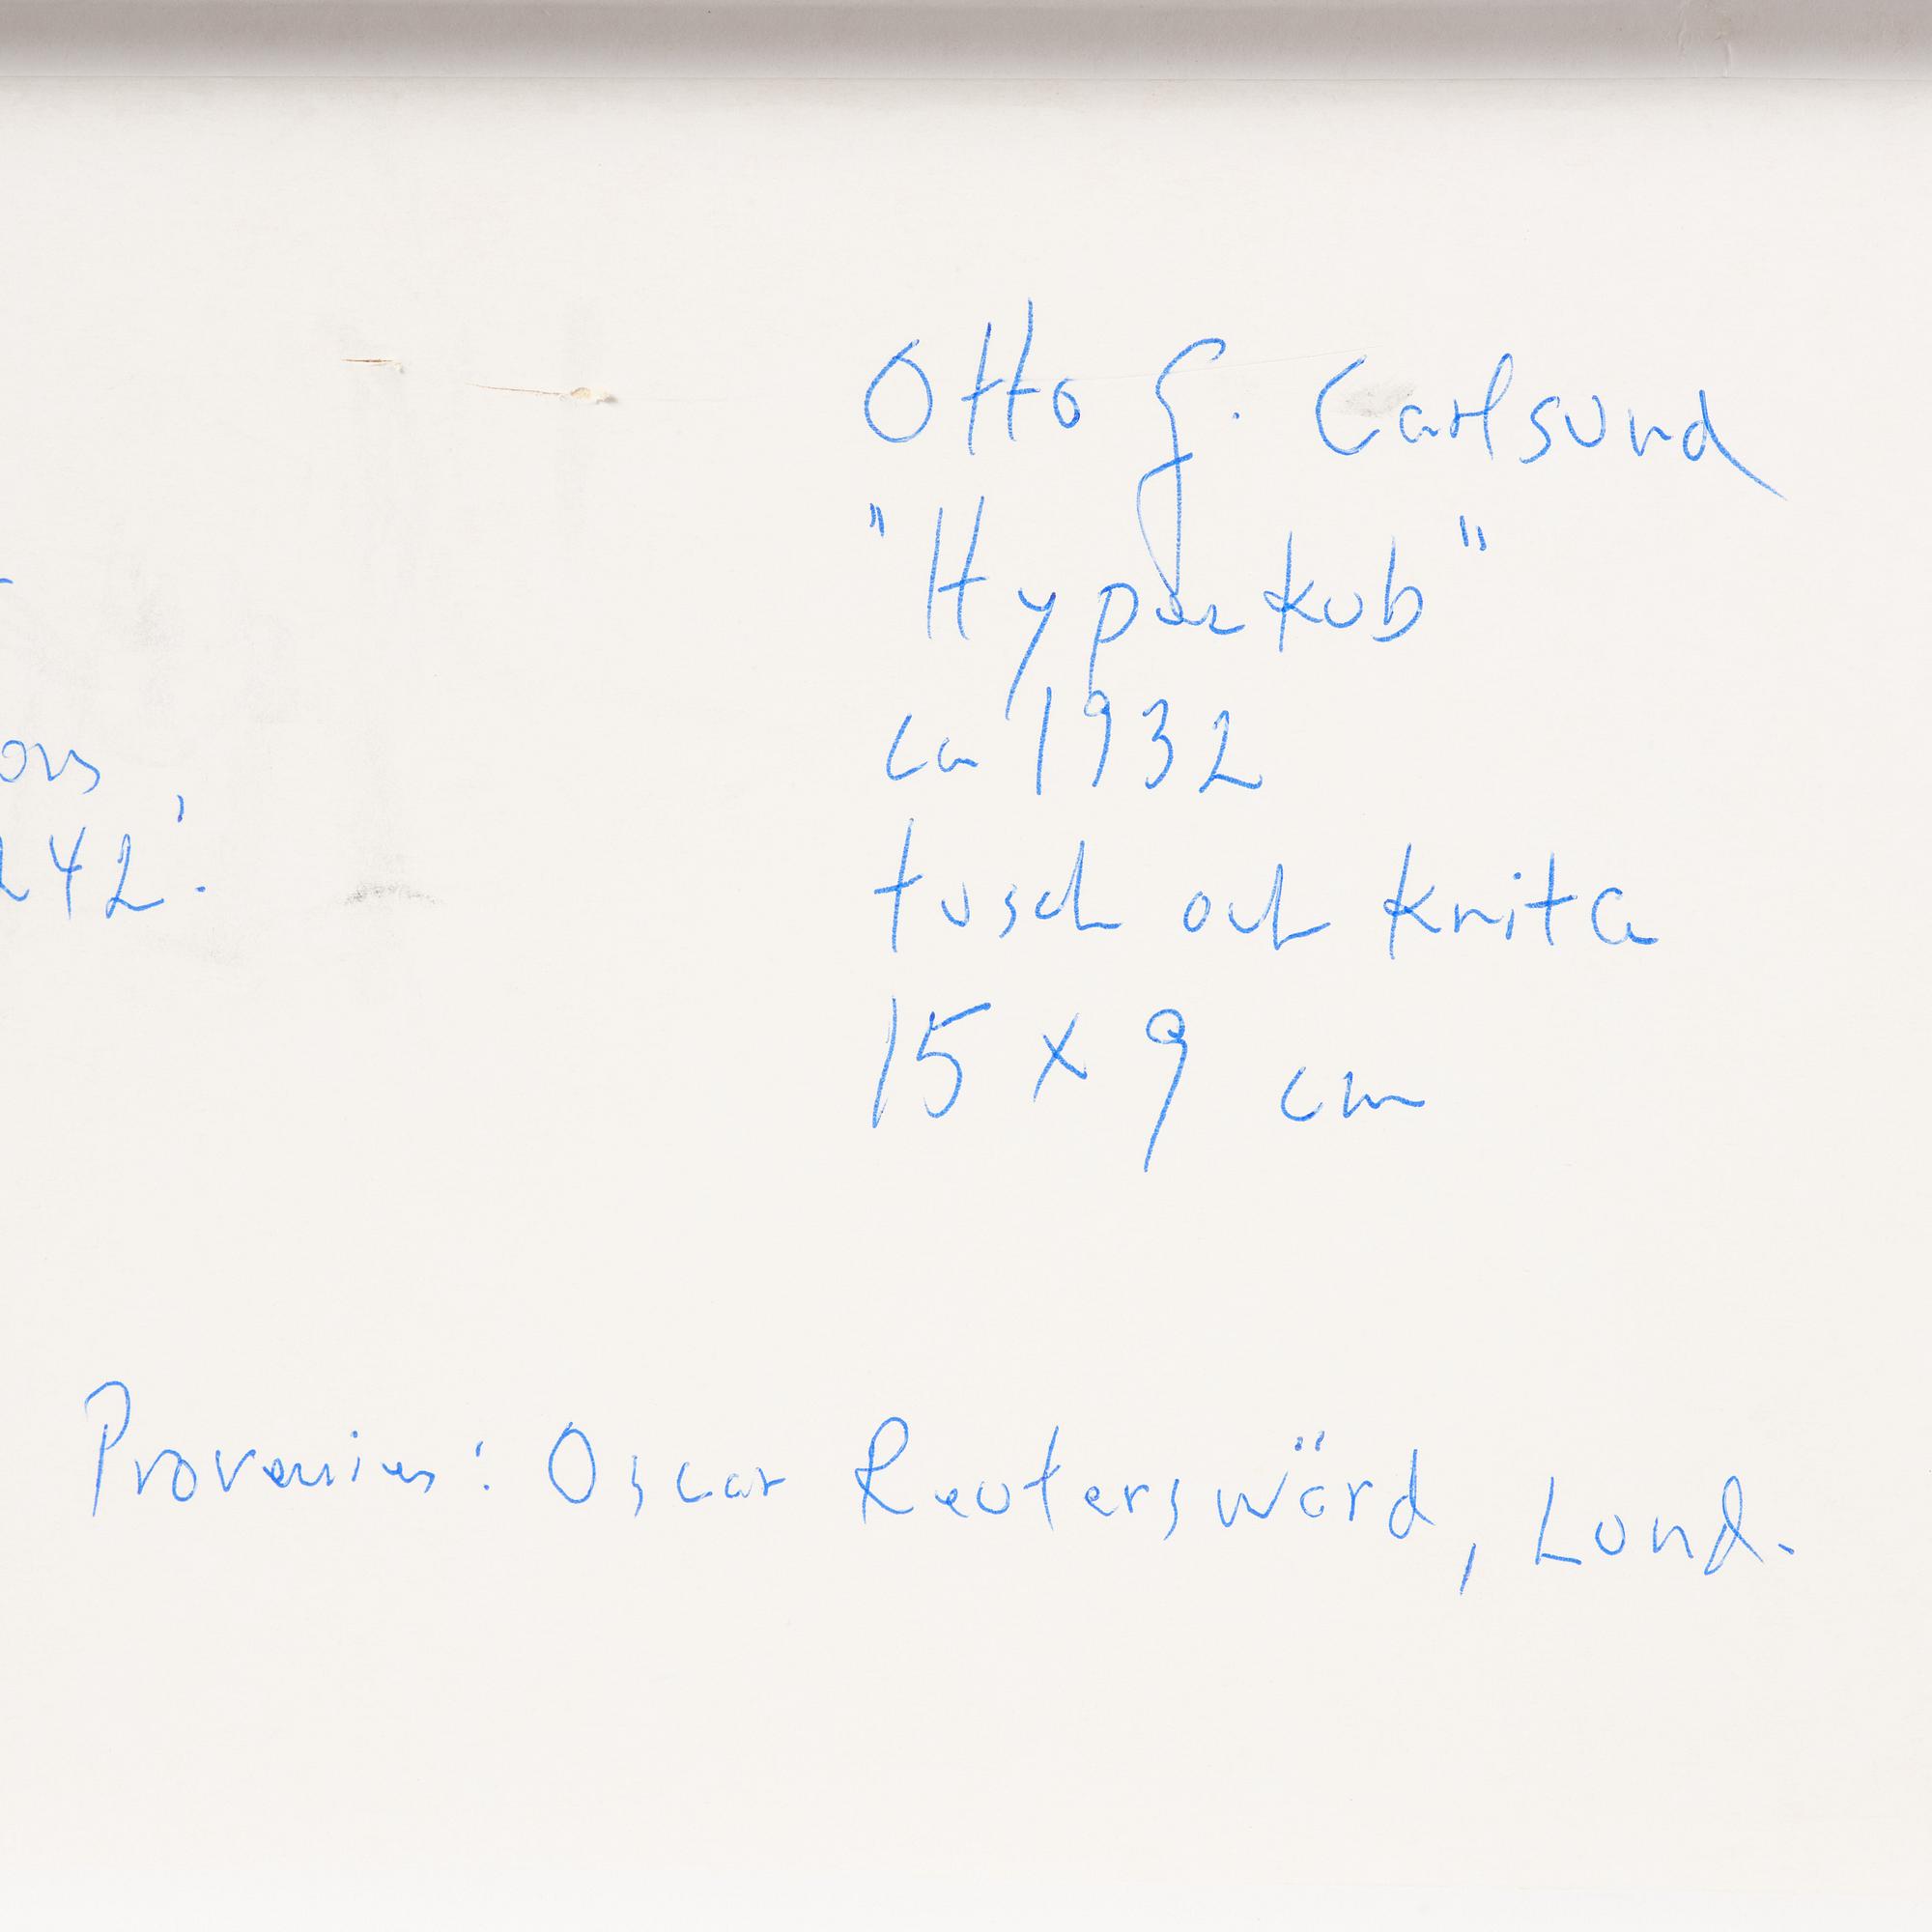 Otto G. Carlsund
"Hyperkub"
ca 1932
tusch och krita
15 x 9 cm
242.
Proveniens: Oscar Reutersvärd, Lund.